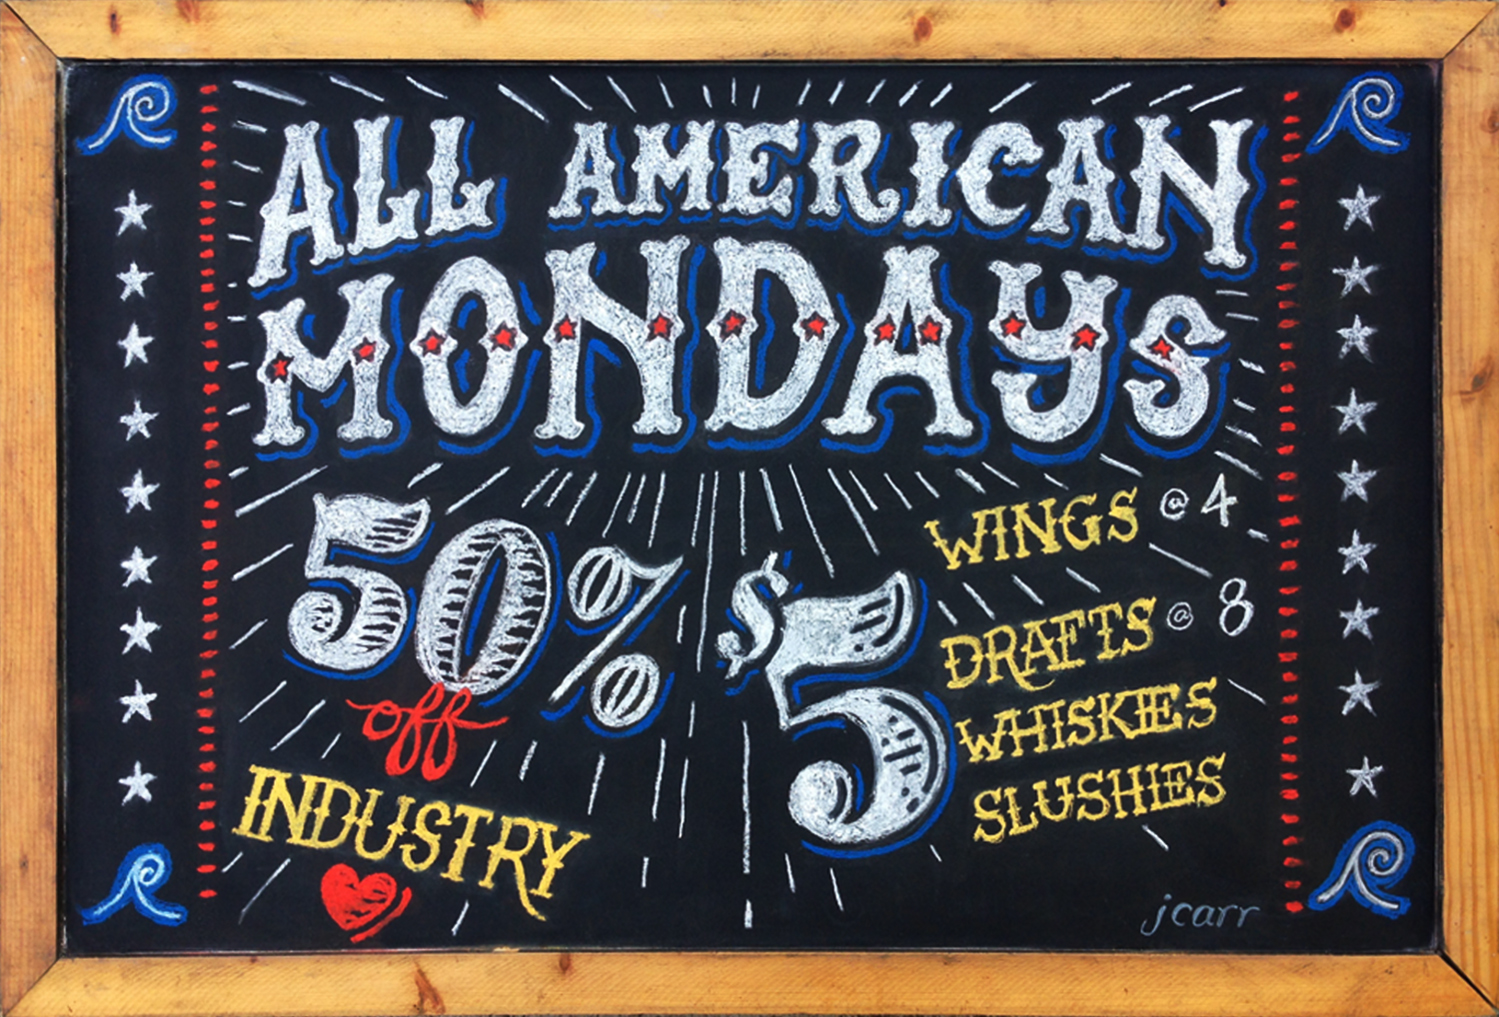 ALL AMERICAN
MONDAYS
50%
off
INDUSTRY
$5
WINGS @ 4
DRAFTS @ 8
WHISKIES
SLUSHIES
jcarr